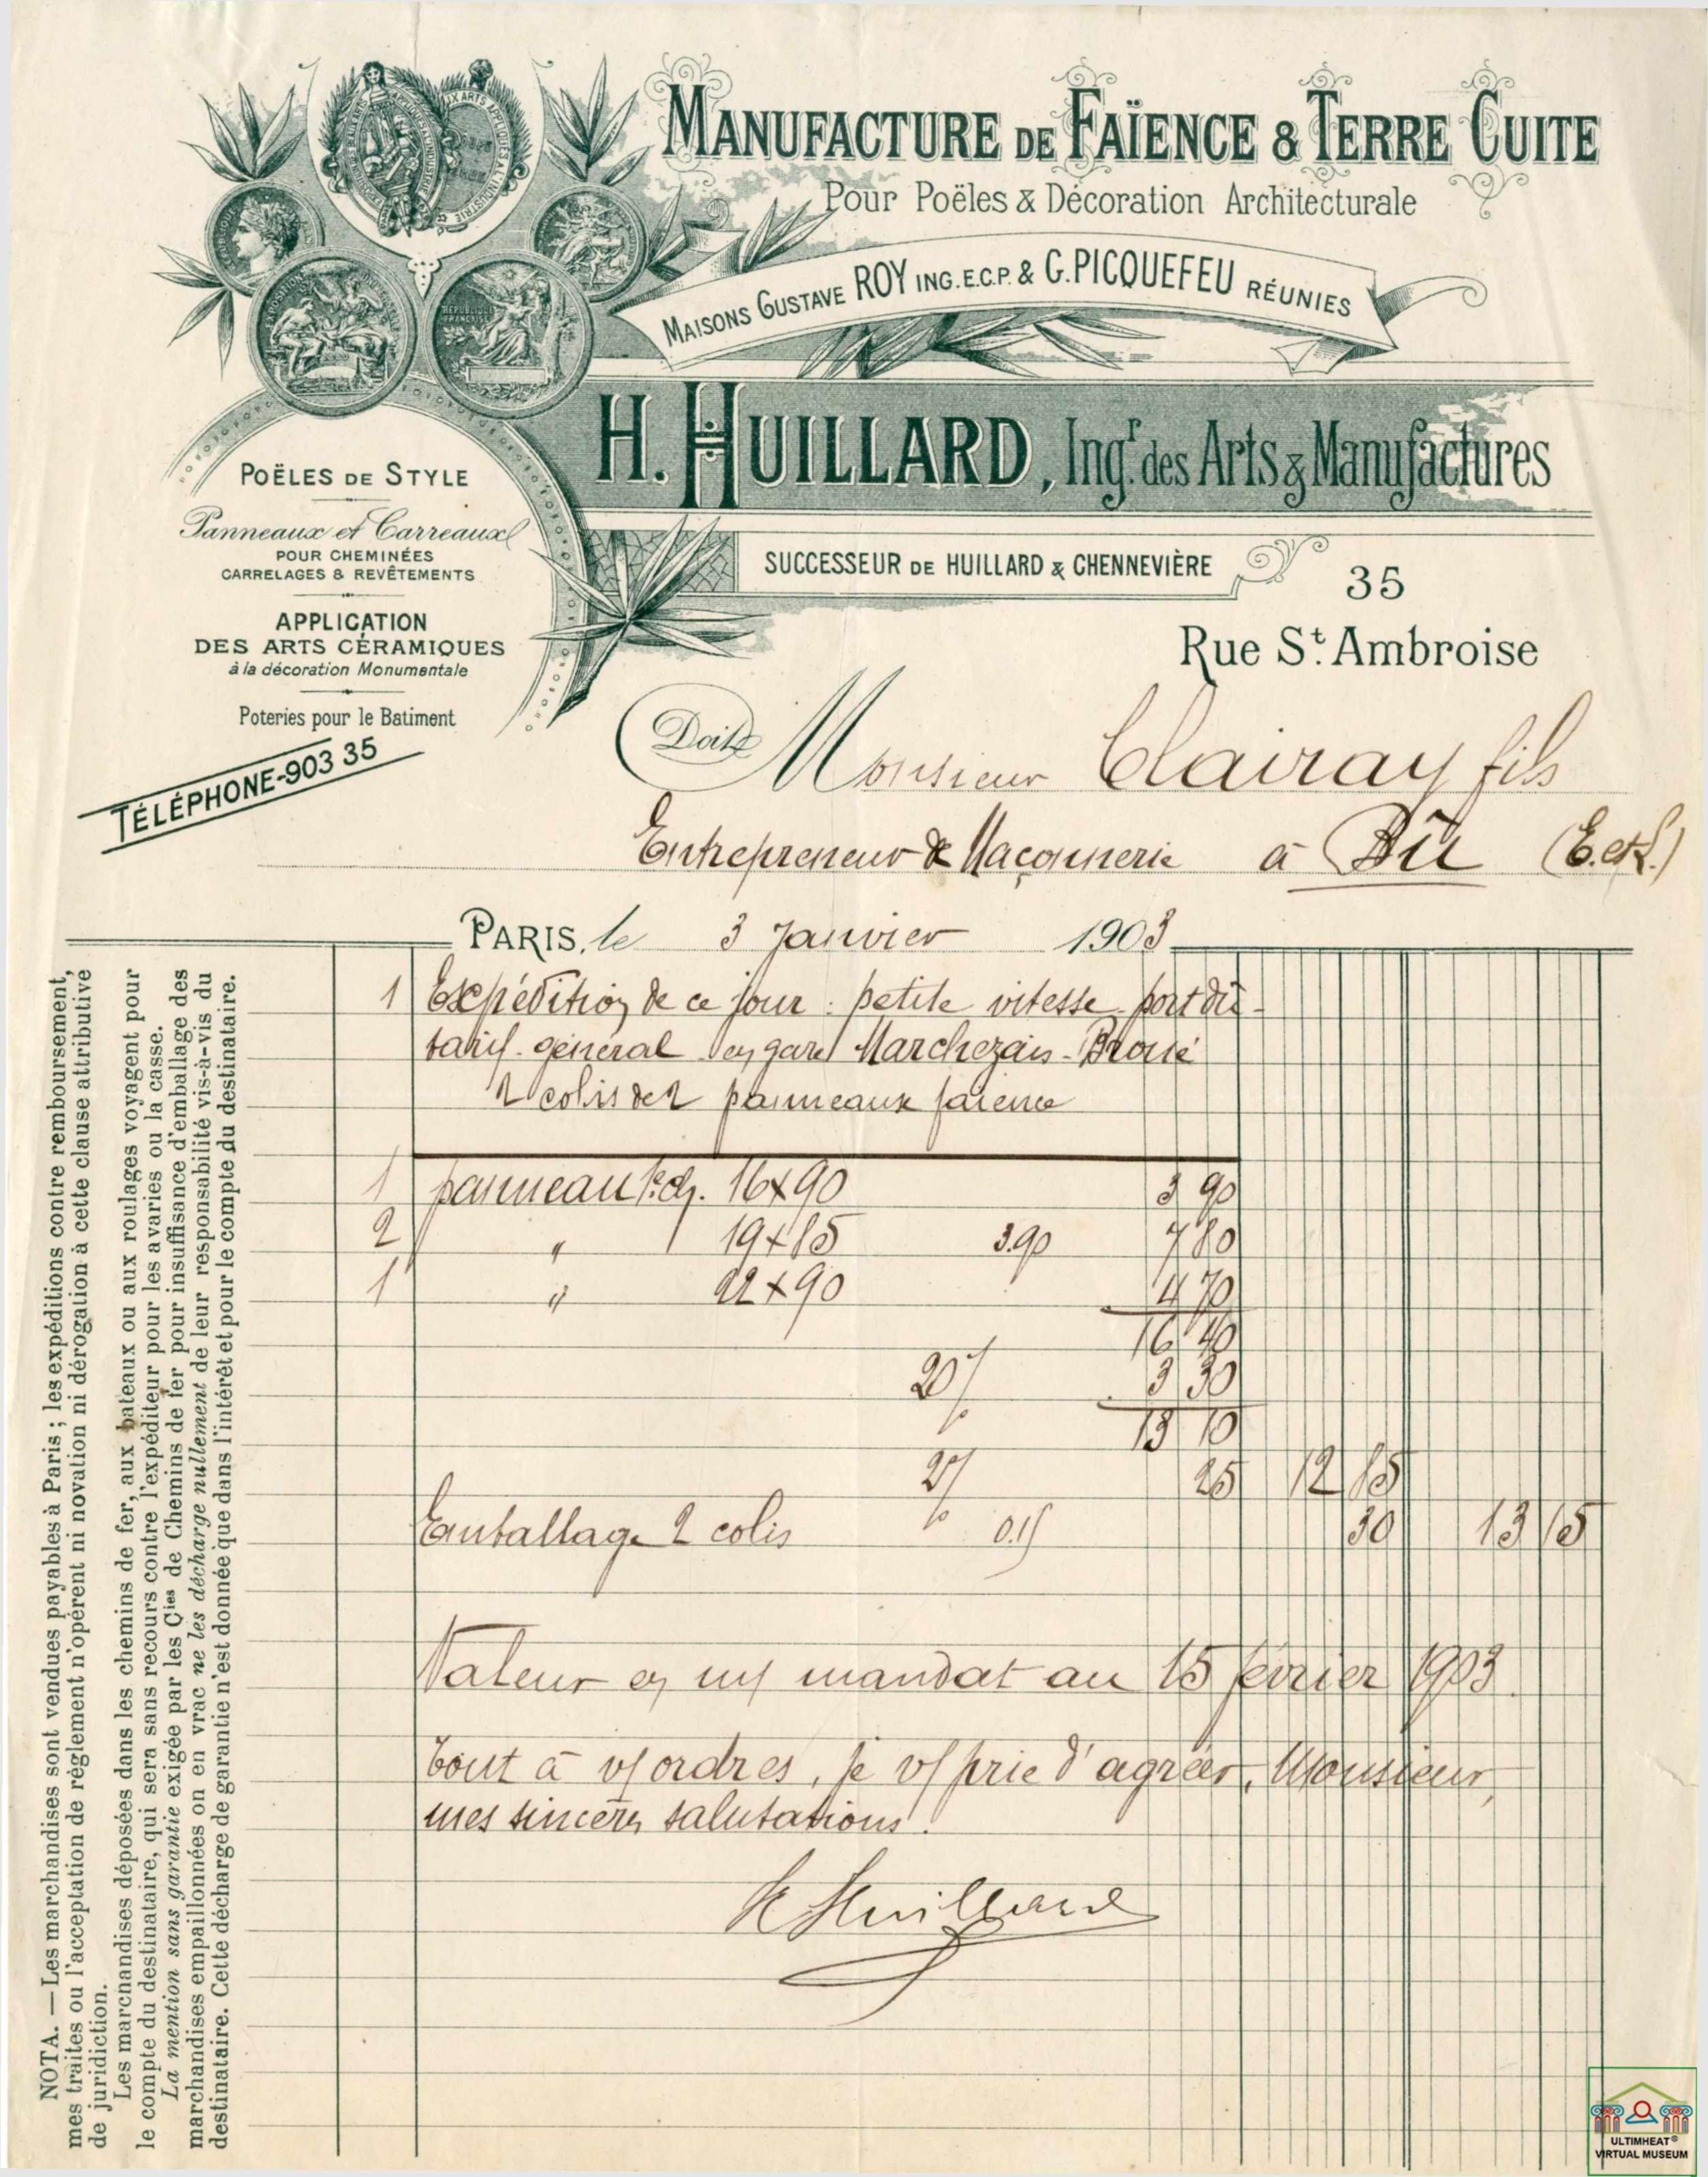 MANUFACTURE DE FAÏENCE & TERRE CUITE
Pour Poëles & Décoration Architecturale
MAISONS GUSTAVE ROY ING. E.C.P. & G. PICQUEFEU RÉUNIES
H. HUILLARD, Ingr. des Arts & Manufactures
SUCCESSEUR DE HUILLARD & CHENNEVIÈRE
35
Rue St. Ambroise
POËLES DE STYLE
Panneaux et Carreaux
POUR CHEMINÉES
CARRELAGES & REVÊTEMENTS
APPLICATION
DES ARTS CÉRAMIQUES
à la décoration Monumentale
Poteries pour le Batiment
TÉLÉPHONE-903 35
Doit Monsieur Clairay fils
Entrepreneur de Maçonnerie à Bû (E.et L.)
PARIS, le 3 Janvier 1903
1 Expédition de ce jour : petite vitesse port dû
tarif général en gare Marchezais-Broué
2 colis de 2 panneaux faïence
1 panneau 16x90 3 90
2 " 19x85 3.90 7 80
1 " 22x90 4 70
16 40
20% 3 30
13 10
2% 25 12 85
Emballage 2 colis 0.15 30 13 15
Valeur en m/ mandat au 15 février 1903.
Tout à v/ ordres, je v/ prie d'agréer, Monsieur,
mes sincères salutations.
H Huillard
NOTA. — Les marchandises sont vendues payables à Paris ; les expéditions contre remboursement,
mes traites ou l'acceptation de règlement n'opèrent ni novation ni dérogation à cette clause attributive
de juridiction.
Les marchandises déposées dans les chemins de fer, aux bateaux ou aux roulages voyagent pour
le compte du destinataire, qui sera sans recours contre l'expéditeur pour les avaries ou la casse.
La mention sans garantie exigée par les Cies de Chemins de fer pour insuffisance d'emballage des
marchandises empaillonnées ou en vrac ne les décharge nullement de leur responsabilité vis-à-vis du
destinataire. Cette décharge de garantie n'est donnée que dans l'intérêt et pour le compte du destinataire.
ULTIMHEAT®
VIRTUAL MUSEUM